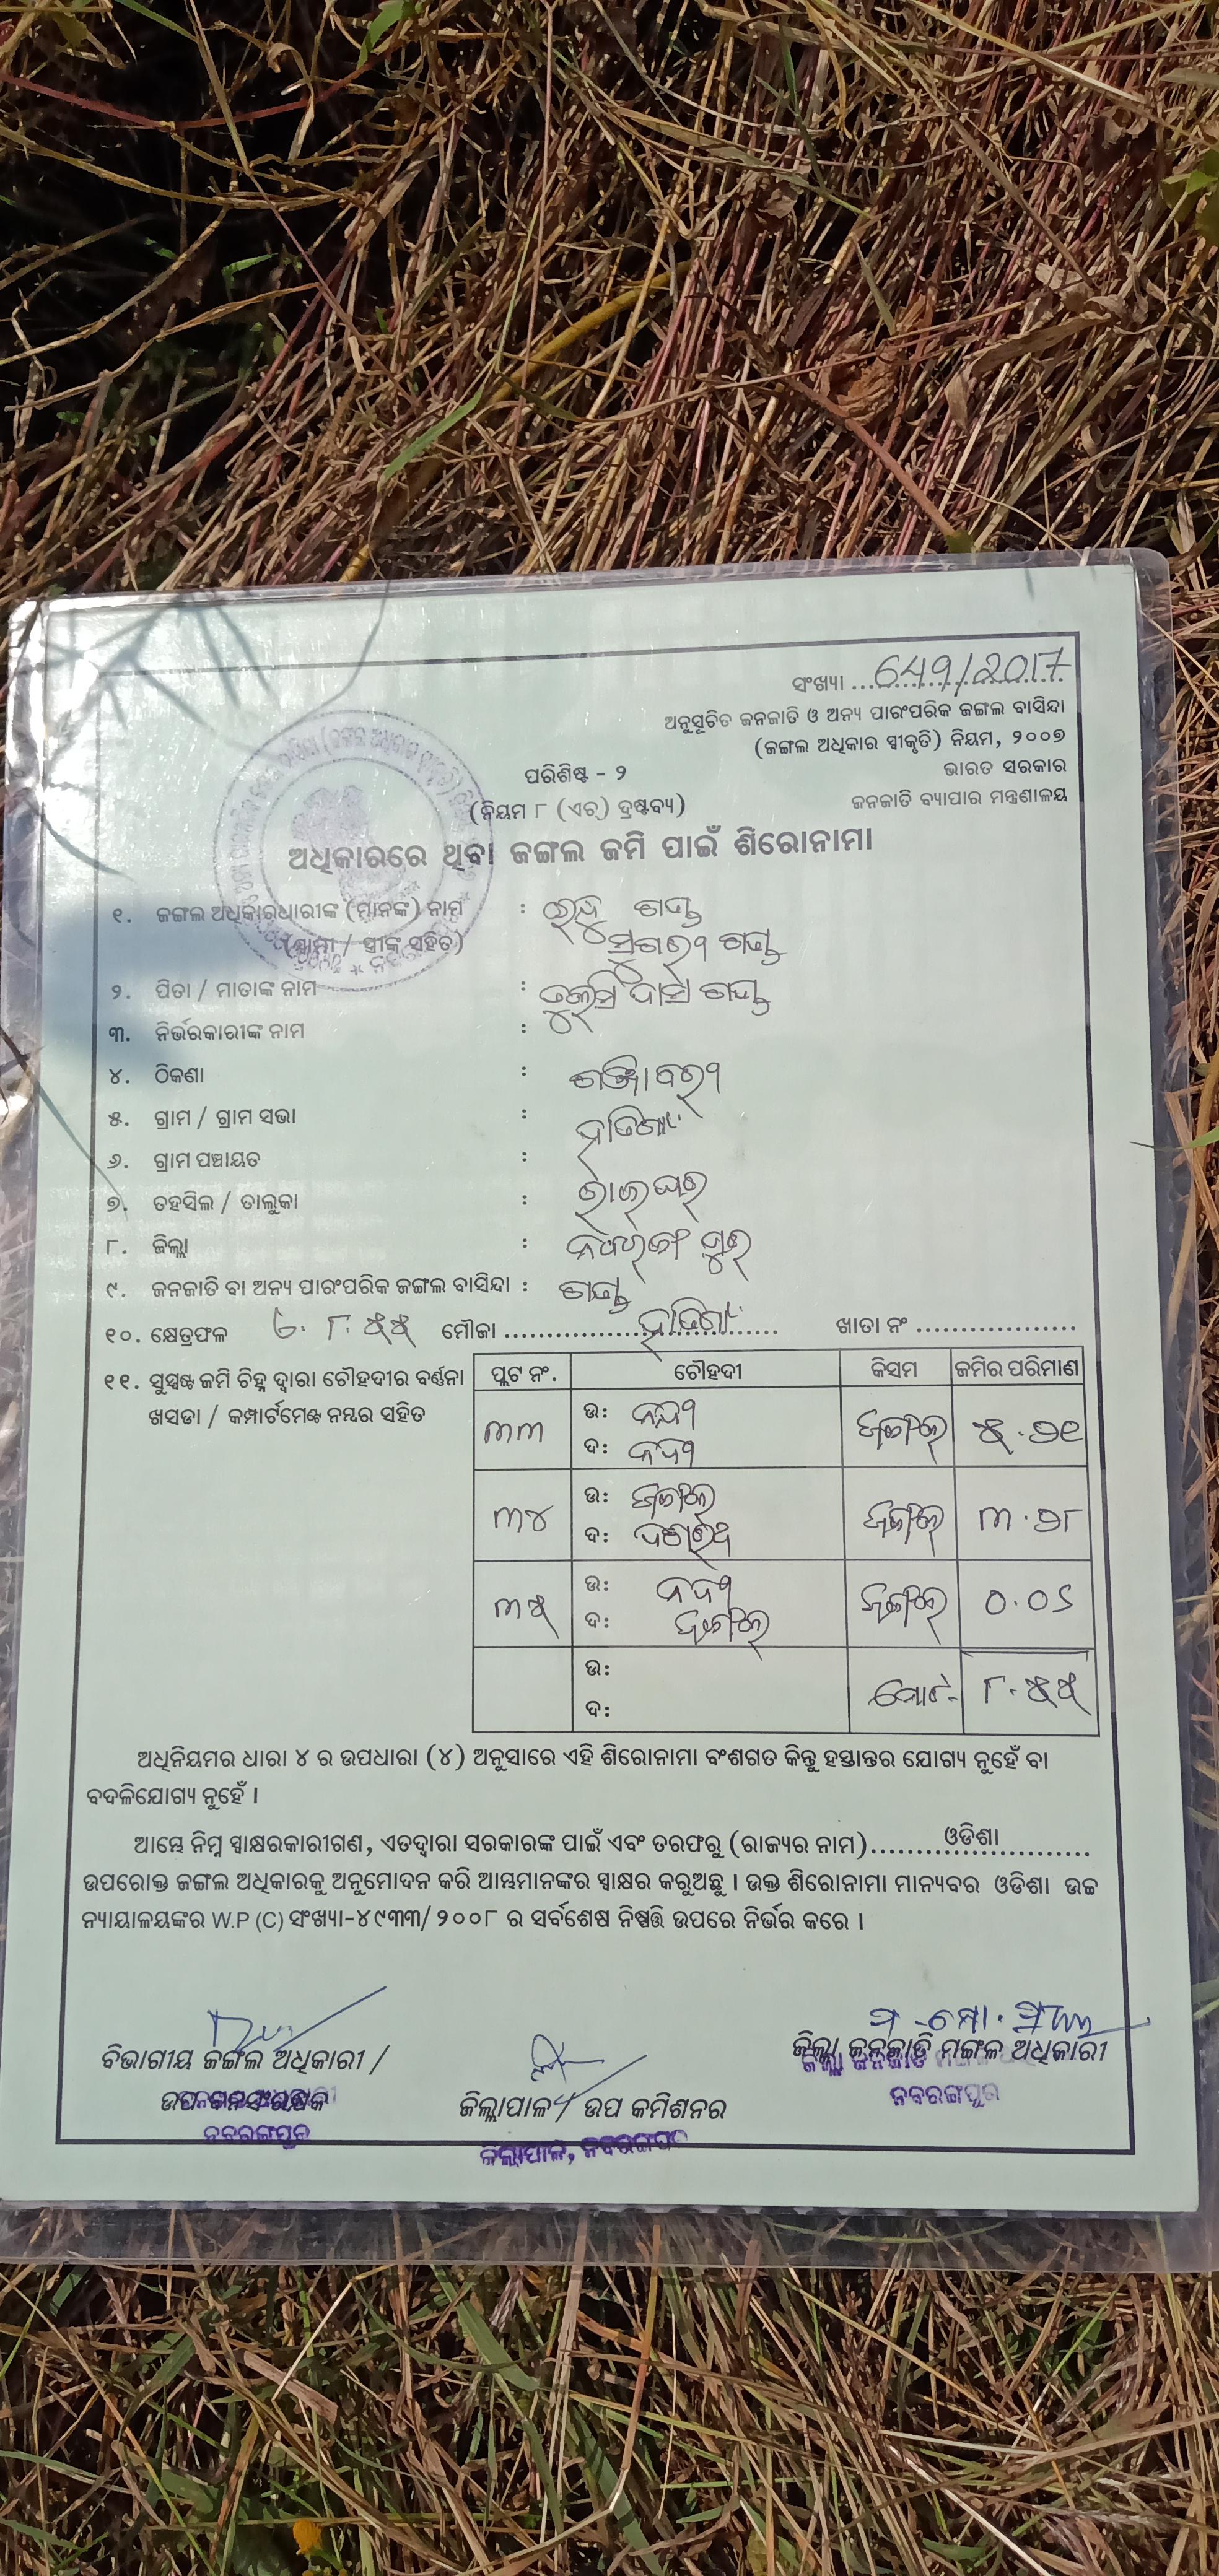 ସଂଖ୍ୟା ...649/2017
ଅନୁସୂଚିତ ଜନଜାତି ଓ ଅନ୍ୟ ପାରଂପରିକ ଜଙ୍ଗଲ ବାସିନ୍ଦା
(ଜଙ୍ଗଲ ଅଧିକାର ସ୍ୱୀକୃତି) ନିୟମ, ୨୦୦୭
ପରିଶିଷ୍ଟ - ୨
ଭାରତ ସରକାର
(ନିୟମ ୮ (ଏଚ୍) ଦ୍ରଷ୍ଟବ୍ୟ)
ଜନଜାତି ବ୍ୟାପାର ମନ୍ତ୍ରଣାଳୟ
ଅଧିକାରରେ ଥିବା ଜଙ୍ଗଲ ଜମି ପାଇଁ ଶିରୋନାମା
୧. ଜଙ୍ଗଲ ଅଧିକାରଧାରୀଙ୍କ (ମାନଙ୍କ) ନାମ : ଗଣ୍ଡ
(ସ୍ୱାମୀ / ସ୍ତ୍ରୀଙ୍କ ସହିତ) ଗଣ୍ଡ
୨. ପିତା / ମାତାଙ୍କ ନାମ : ତୁଲସି ଦାସ ଗଣ୍ଡ
୩. ନିର୍ଭରକାରୀଙ୍କ ନାମ :
୪. ଠିକଣା :
୫. ଗ୍ରାମ / ଗ୍ରାମ ସଭା :
୬. ଗ୍ରାମ ପଞ୍ଚାୟତ :
୭. ତହସିଲ / ତାଲୁକା : ରାଇଘର
୮. ଜିଲ୍ଲା : ନବରଙ୍ଗପୁର
୯. ଜନଜାତି ବା ଅନ୍ୟ ପାରଂପରିକ ଜଙ୍ଗଲ ବାସିନ୍ଦା : ଗଣ୍ଡ
୧୦. କ୍ଷେତ୍ରଫଳ ୮.୫୫ ମୌଜା ................ ଖାତା ନଂ ..................
୧୧. ସୁସ୍ପଷ୍ଟ ଜମି ଚିହ୍ନ ଦ୍ୱାରା ଚୌହଦୀର ବର୍ଣ୍ଣନା
ଖସଡା / କମ୍ପାର୍ଟମେଣ୍ଟ ନମ୍ବର ସହିତ
ପ୍ଲଟ ନଂ. ଚୌହଦୀ କିସମ ଜମିର ପରିମାଣ
୩୩ ଉ: ନଦୀ ଜଙ୍ଗଲ ୫.୬୧
ଦ: ନଦୀ
୩୪ ଉ: ଜଙ୍ଗଲ ଜଙ୍ଗଲ ୩.୬୮
ଦ: ଦଶରଥ
୩୫ ଉ: ନଦୀ ଜଙ୍ଗଲ
ଦ: ଜଙ୍ଗଲ
ଉ: ମୋଟ- ୮.୫୫
ଦ:
ଅଧିନିୟମର ଧାରା ୪ ର ଉପଧାରା (୪) ଅନୁସାରେ ଏହି ଶିରୋନାମା ବଂଶଗତ କିନ୍ତୁ ହସ୍ତାନ୍ତର ଯୋଗ୍ୟ ନୁହେଁ ବା
ବଦଳିଯୋଗ୍ୟ ନୁହେଁ ।
ଆମ୍ଭେ ନିମ୍ନ ସ୍ୱାକ୍ଷରକାରୀଗଣ, ଏତଦ୍ୱାରା ସରକାରଙ୍କ ପାଇଁ ଏବଂ ତରଫରୁ (ରାଜ୍ୟର ନାମ)........ଓଡିଶା........
ଉପରୋକ୍ତ ଜଙ୍ଗଲ ଅଧିକାରକୁ ଅନୁମୋଦନ କରି ଆମ୍ଭମାନଙ୍କର ସ୍ୱାକ୍ଷର କରୁଅଛୁ । ଉକ୍ତ ଶିରୋନାମା ମାନ୍ୟବର ଓଡିଶା ଉଚ୍ଚ
ନ୍ୟାୟାଳୟଙ୍କର W.P (C) ସଂଖ୍ୟା-୪୯୩୩/୨୦୦୮ ର ସର୍ବଶେଷ ନିଷ୍ପତ୍ତି ଉପରେ ନିର୍ଭର କରେ ।
ବିଭାଗୀୟ ଜଙ୍ଗଲ ଅଧିକାରୀ /
ଉପ ବନସଂରକ୍ଷକ
ନବରଙ୍ଗପୁର
ଜିଲ୍ଲାପାଳ / ଉପ କମିଶନର
ଜିଲ୍ଲାପାଳ, ନବରଙ୍ଗପୁର
ଜିଲ୍ଲା ଜନଜାତି ମଙ୍ଗଳ ଅଧିକାରୀ
ନବରଙ୍ଗପୁର